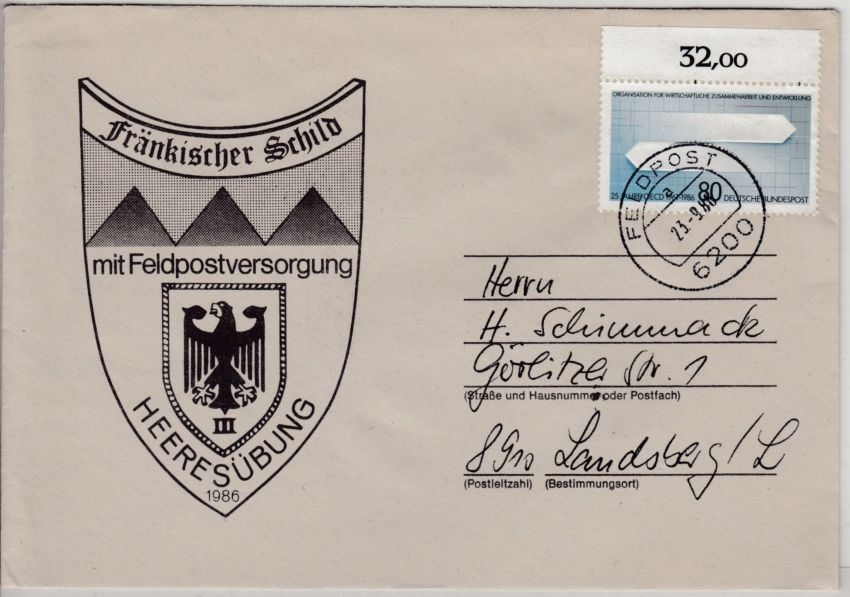 32,00
ORGANISATION FÜR WIRTSCHAFTLICHE ZUSAMMENARBEIT UND ENTWICKLUNG
80
25 JAHRE OECD 1961-1986 DEUTSCHE BUNDESPOST
FELDPOST
a
23.-9.86
6200
Fränkischer Schild
mit Feldpostversorgung
III
HEERESÜBUNG
1986
Herrn
H. Schimmack
Görlitzer Str. 1
(Straße und Hausnummer oder Postfach)
8910 Landsberg/L
(Postleitzahl) (Bestimmungsort)